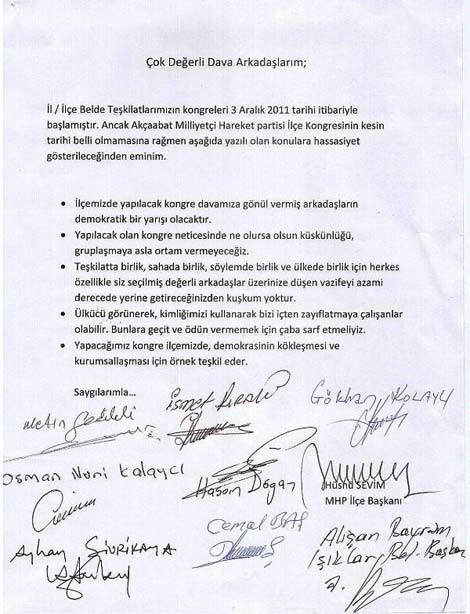 Çok Değerli Dava Arkadaşlarım;
İl / İlçe Belde Teşkilatlarımızın kongreleri 3 Aralık 2011 tarihi itibariyle
başlamıştır. Ancak Akçaabat Milliyetçi Hareket partisi İlçe Kongresinin kesin
tarihi belli olmamasına rağmen aşağıda yazılı olan konulara hassasiyet
gösterileceğinden eminim.
• İlçemizde yapılacak kongre davamıza gönül vermiş arkadaşların
demokratik bir yarışı olacaktır.
• Yapılacak olan kongre neticesinde ne olursa olsun küskünlüğü,
gruplaşmaya asla ortam vermeyeceğiz.
• Teşkilatta birlik, sahada birlik, söylemde birlik ve ülkede birlik için herkes
özellikle siz seçilmiş değerli arkadaşlar üzerinize düşen vazifeyi azami
derecede yerine getireceğinizden kuşkum yoktur.
• Ülkücü görünerek, kimliğimizi kullanarak bizi içten zayıflatmaya çalışanlar
olabilir. Bunlara geçit ve ödün vermemek için çaba sarf etmeliyiz.
• Yapacağımız kongre ilçemizde, demokrasinin kökleşmesi ve
kurumsallaşması için örnek teşkil eder.
Saygılarımla...
Metin
İsmet
Gökhan KOLAYLI
Osman Nuri Kalaycı
Hasan Doğan
Hüsnü SEVİM
MHP İlçe Başkanı
Cemal BAŞ
Ayhan SİVRİKAYA
Alişan Bayram
Işıklar Bel. Başkanı